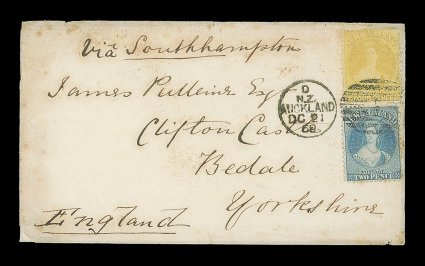 Via Southhampton
James Pulleine Esq
Clifton Cas
Bedale
Yorkshire
England
D
N.Z.
AUCKLAND
DC 21
68
NEW ZEALAND
TWO PENCE